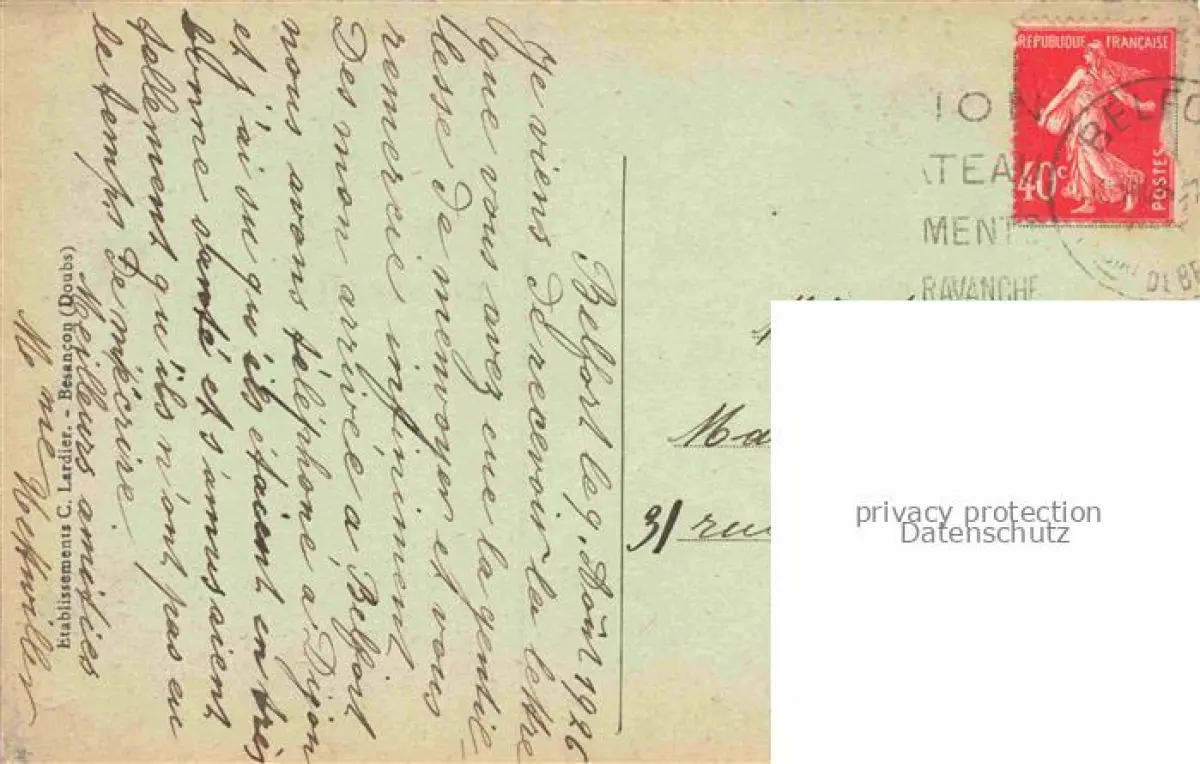 Belfort le 9. Août 1926
Je viens de recevoir la lettre
que vous avez eue la gentil-
lesse de m'envoyer et vous
remercie infiniment
Des mon arrivée à Belfort
nous avons téléphoné à Dijon
et j'ai su qu'ils étaient en très
bonne santé et s'amusaient
tellement qu'ils n'ont pas eu
le temps De m'écrire.
Meilleurs amitiés
Etablissements C. Lardier. - Besançon (Doubs)
REPUBLIQUE FRANÇAISE
40c
POSTES
BELFO
DE BE
ION
ATEAU
MENTS
RAVANCHE
Ma
31 rue
privacy protection
Datenschutz